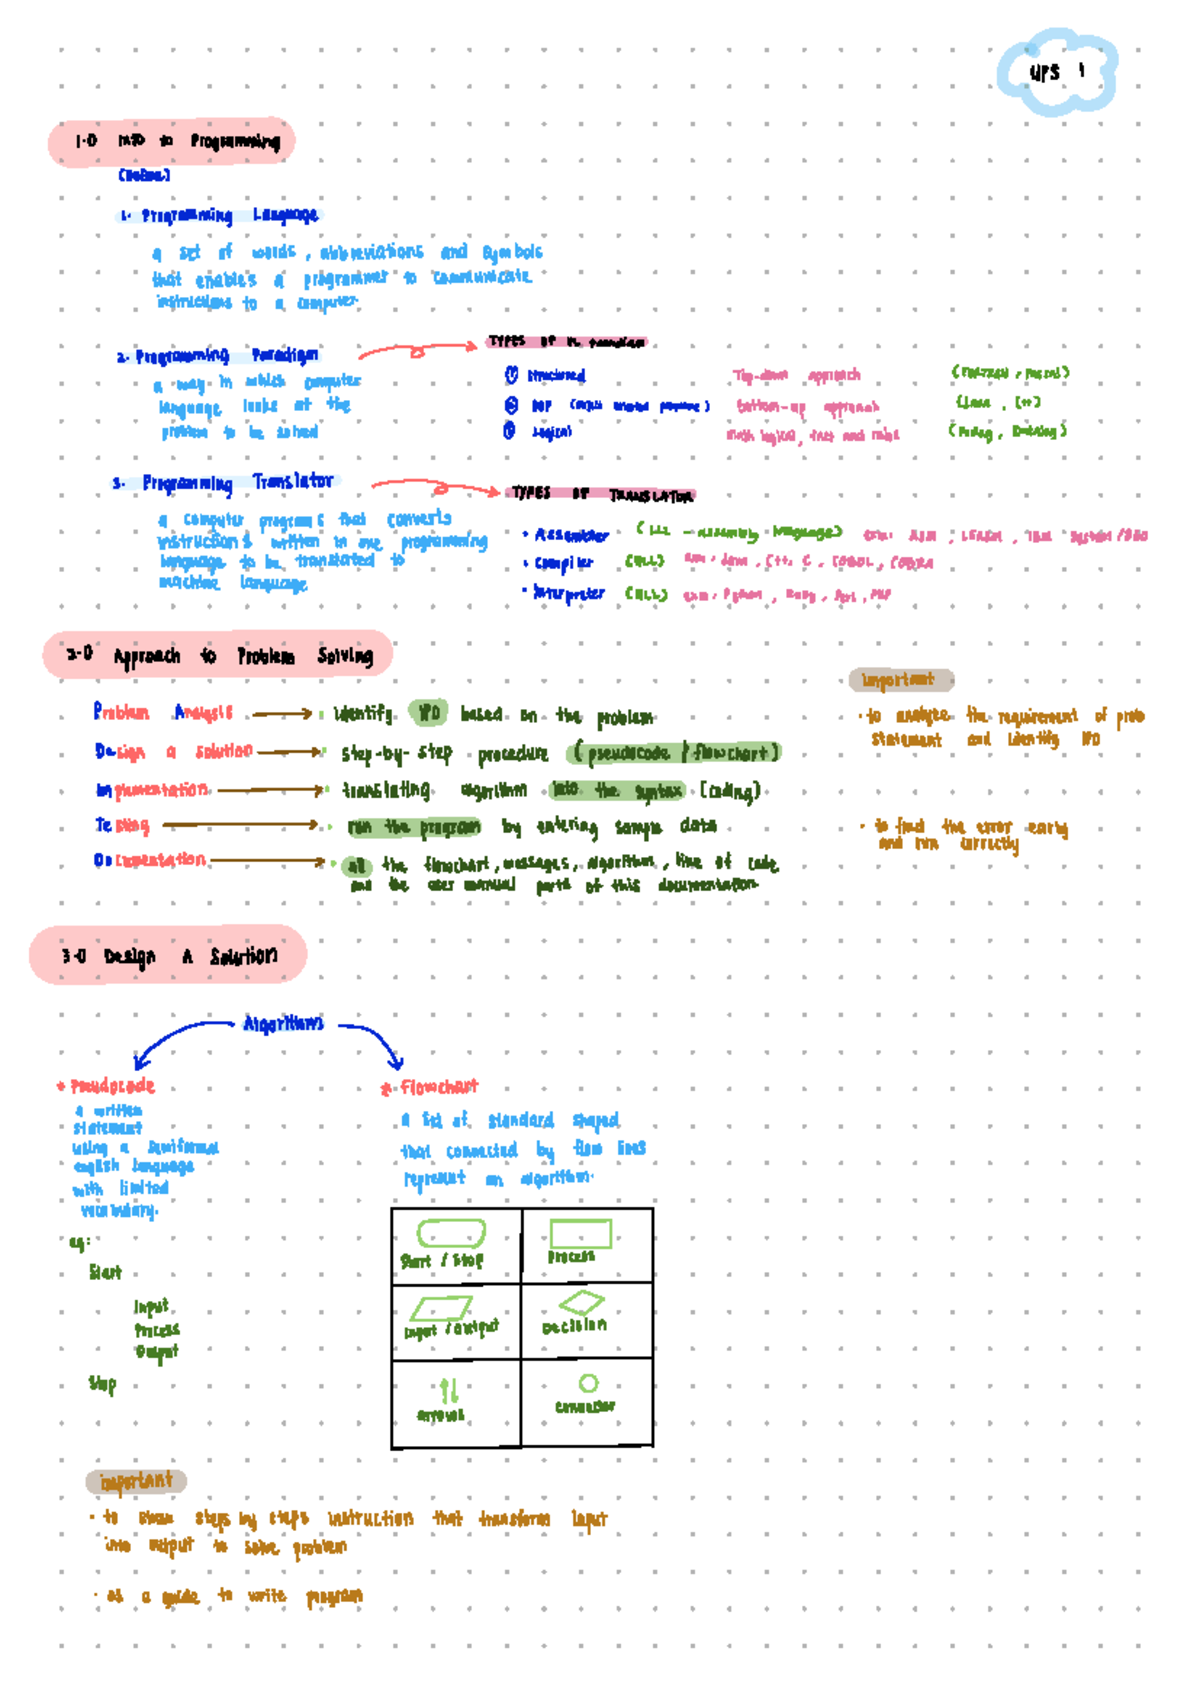 UPS 1
1.0 Intro to Programming
(Define)
1. Programming Language
a set of words, abbreviations and symbols
that enables a programmer to communicate
instructions to a computer.
2. Programming Paradigm
a way in which computer
language looks at the
problem to be solved
TYPES OF
① Structured Top-down approach (FORTRAN, Pascal)
② OOP bottom-up approach (Java, C++)
③ Logical math logical, fact and rules (Prolog, Datalog)
3. Programming Translator
a computer programs that converts
instructions written in one programming
language to be translated to
machine language
TYPES OF TRANSLATOR
• Assembler (LLL - assembly language)
• Compiler (HLL) Java, C++, C, COBOL, COBRA
• Interpreter (HLL) Python, Ruby, Perl, PHP
2.0 Approach to Problem Solving
Problem Analysis identify IPO based on the problem
Design a solution step-by-step procedure (pseudocode / flowchart)
Implementation translating algorithm into the syntax (coding)
Testing run the program by entering sample data
Documentation all the flowchart, messages, algorithm, line of code
and the user manual parts of this documentation.
important
• to analyze the requirement of prob
statement and identify IPO
• to find the error early
and run correctly
3.0 Design A Solution
Algorithms
* Pseudocode
a written
statement
using a semiformal
english language
with limited
vocabulary.
eg:
Start
Input
Process
Output
Stop
* Flowchart
a list of standard shaped
that connected by flow lines
represent an algorithm.
Start / Stop
Process
Input / Output
Decision
arrows
connector
important
• to show steps by steps instruction that transform input
into output to solve problem
• as a guide to write program